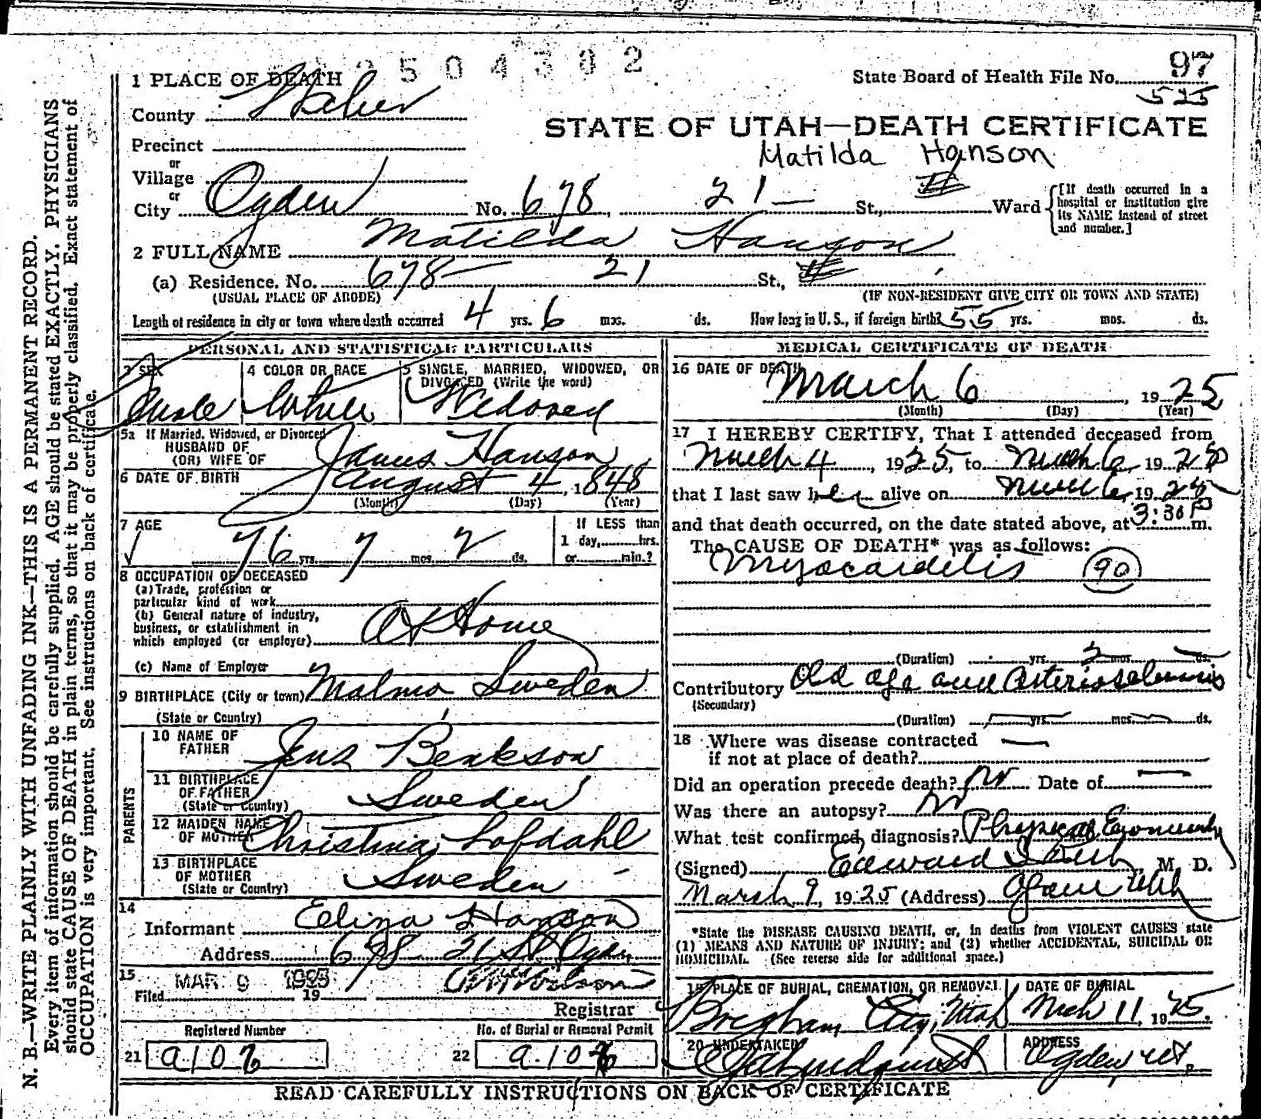 2504302
1 PLACE OF DEATH
State Board of Health File No. 97
525
County Weber
STATE OF UTAH—DEATH CERTIFICATE
Matilda Hanson
Precinct
or
Village
or
City Ogden No. 678, 21 — St., Ward
[If death occurred in a hospital or institution give its NAME instead of street and number.]
2 FULL NAME Matilda Hanson
(a) Residence. No. 678 — 21 St.,
(USUAL PLACE OF ABODE) (IF NON-RESIDENT GIVE CITY OR TOWN AND STATE)
Length of residence in city or town where death occurred 4 yrs. 6 mos. ds. How long in U. S., if foreign birth? 55 yrs. mos. ds.
PERSONAL AND STATISTICAL PARTICULARS
3 SEX
4 COLOR OR RACE
5 SINGLE, MARRIED, WIDOWED, OR DIVORCED (Write the word)
White Widowed
5a If Married, Widowed, or Divorced
HUSBAND OF
(OR) WIFE OF James Hanson
6 DATE OF BIRTH August 4, 1848
(Month) (Day) (Year)
7 AGE
76 yrs. 7 mos. 2 ds.
If LESS than
1 day, hrs.
or min.?
8 OCCUPATION OF DECEASED
(a) Trade, profession or
particular kind of work
(b) General nature of industry,
business, or establishment in
which employed (or employer) At Home
(c) Name of Employer
9 BIRTHPLACE (City or town) Malmo Sweden
(State or Country)
PARENTS
10 NAME OF
FATHER Jens
11 BIRTHPLACE
OF FATHER
(State or Country) Sweden
12 MAIDEN NAME
OF MOTHER Christina Lofdahl
13 BIRTHPLACE
OF MOTHER
(State or Country) Sweden
14
Informant Eliza Hanson
Address 678 21 St. Ogden
15
Filed MAR 9 1925 19
Wilson
Registrar
Registered Number
No. of Burial or Removal Permit
21 a106
22 a.106
MEDICAL CERTIFICATE OF DEATH
16 DATE OF DEATH March 6, 1925
(Month) (Day) (Year)
17 I HEREBY CERTIFY, That I attended deceased from
March 4, 1925, to March 6, 1925
that I last saw her alive on March 6, 1925
and that death occurred, on the date stated above, at 3:30 P m.
The CAUSE OF DEATH* was as follows:
Myocarditis (90)
(Duration) yrs. 2 mos. ds.
Contributory Old age and Arteriosclerosis
(Secondary)
(Duration) yrs. mos. ds.
18 Where was disease contracted
if not at place of death? —
Did an operation precede death? No Date of —
Was there an autopsy? No
What test confirmed diagnosis? Physical
(Signed) Edward M. D.
March 9, 1925 (Address) Ogden Utah
*State the DISEASE CAUSING DEATH, or, in deaths from VIOLENT CAUSES state
(1) MEANS AND NATURE OF INJURY; and (2) whether ACCIDENTAL, SUICIDAL OR
HOMICIDAL. (See reverse side for additional space.)
19 PLACE OF BURIAL, CREMATION, OR REMOVAL
DATE OF BURIAL
Brigham City, Utah Mch 11, 1925.
20 UNDERTAKER
ADDRESS
Ogden, Ut.
READ CAREFULLY INSTRUCTIONS ON BACK OF CERTIFICATE
N. B.—WRITE PLAINLY WITH UNFADING INK—THIS IS A PERMANENT RECORD.
Every item of information should be carefully supplied. AGE should be stated EXACTLY. PHYSICIANS
should state CAUSE OF DEATH in plain terms, so that it may be properly classified. Exact statement of
OCCUPATION is very important. See instructions on back of certificate.